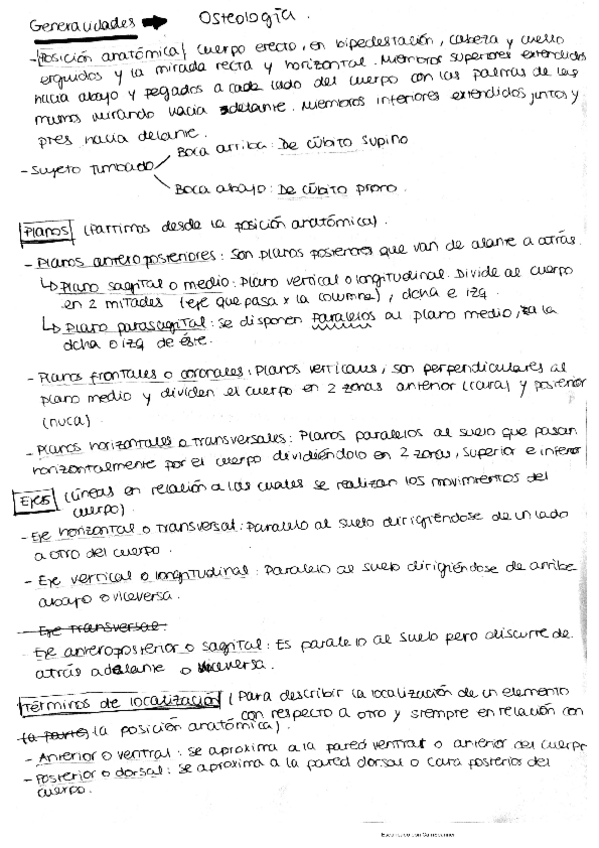 Generalidades → Osteología.
- Posición anatómica| cuerpo erecto, en bipedestación, cabeza y cuello
erguidos y la mirada recta y horizontal. Miembros superiores extendidos
hacia abajo y pegados a cada lado del cuerpo con las palmas de las
manos mirando hacia adelante. Miembros inferiores extendidos juntos y
pies hacia delante.
- Sujeto tumbado
Boca arriba: De cúbito supino
Boca abajo: De cúbito prono.
Planos (Partimos desde la posición anatómica).
- Planos anteroposteriores: Son planos posteriores que van de alante a atrás.
↳ Plano sagital o medio: Plano vertical o longitudinal. Divide al cuerpo
en 2 mitades (eje que pasa x la columna), dcha e izq.
↳ Plano parasagital: se disponen paralelos al plano medio, a la
dcha o izq de éste.
- Planos frontales o coronales: Planos verticales, son perpendiculares al
plano medio y dividen el cuerpo en 2 zonas anterior (cara) y posterior
(nuca).
- Planos horizontales o transversales: Planos paralelos al suelo que pasan
horizontalmente por el cuerpo dividiéndolo en 2 zonas, superior e inferior
Ejes (Líneas en relación a las cuales se realizan los movimientos del
cuerpo)
- Eje horizontal o transversal: Paralelo al suelo dirigiéndose de un lado
a otro del cuerpo.
- Eje vertical o longitudinal: Paralelo al suelo dirigiéndose de arriba
abajo o viceversa.
- Eje transversal:
Eje anteroposterior o sagital: Es paralelo al suelo pero discurre de
atrás adelante o viceversa.
Términos de localización (Para describir la localización de un elemento
con respecto a otro y siempre en relación con
(a parte) la posición anatómica).
- Anterior o ventral: se aproxima a la pared ventral o anterior del cuerpo
- Posterior o dorsal: se aproxima a la pared dorsal o cara posterior del
cuerpo.
Escaneado con CamScanner